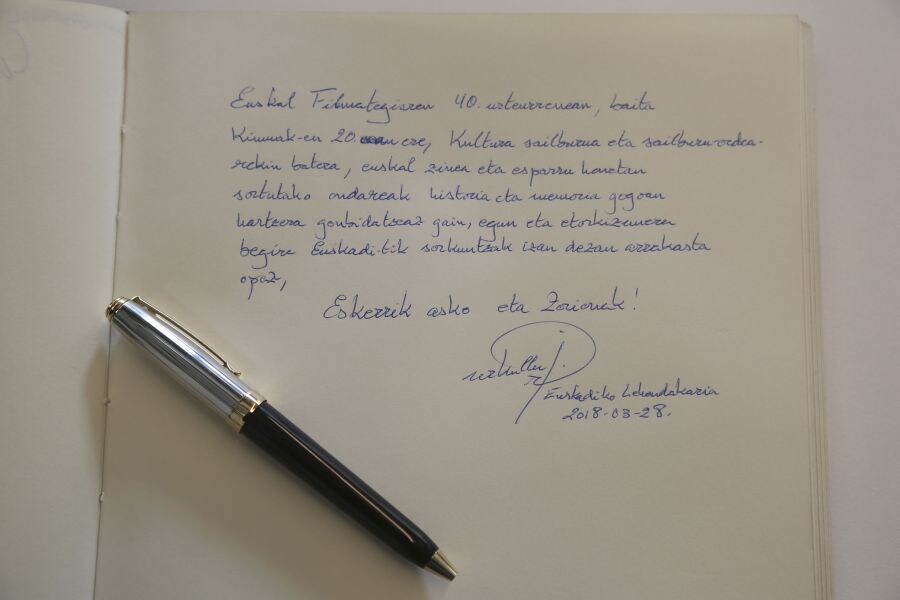 Euskal Filmategiaren 40. urteurrenean, baita
Kimuak-en 20.ean ere, Kultura sailburua eta sailburu-ordea-
rekin batera, euskal zinea eta esparru honetan
sortutako ondareak historia eta memoria gogoan
hartzera gonbidatzeaz gain, egun eta etorkizunera
begira Euskadi-tik sorkuntzak izan dezan arrakasta
opaz,
Eskerrik asko eta Zorionak!
Euskadiko Lehendakaria
2018-03-28.